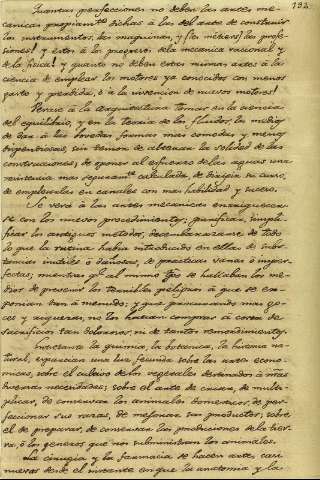 132
Cuantas perfecciones no deben las artes me-
cánicas propiam.te dichas á las del arte de construir
los instrumentos, las maquinas, y (los métiers) las profe-
siones! y estas á los progresos de la mecanica racional y
de la fisica! y cuanto no deben estas mismas artes á la
ciencia de emplear los motores ya conocidos con menos
gasto y perdida, ó á la invencion de nuevos motores!
Veráse á la arquitectura tomar en la ciencia
del equilibrio, y en la teoria de los fluidos, los medios
de dar á las bovedas formas mas comodas y menos
dispendiosas, sin temor de alterar la solidez de las
construcciones; de oponer al esfuerzo de las aguas una
resistencia mas seguram.te calculada, de dirigir su curso,
de emplearlas en canales con mas habilidad y suceso.
Se verá á las artes mecanicas enriquecer-
se con los nuevos procedimientos; purificar, simpli-
ficar los antiguos metodos, desembarazarse de todo
lo que la rutina habia introducido en ellas de subs-
tancias inútiles ó dañosas, de practicas vanas ó imper-
fectas; mientras q.e al mismo tpo se hallaban los me-
dios de prevenir los terribles peligros á que se ex-
ponian tan á menudo; y que procurando mas go-
ces y riquezas, no los hacian comprar á costa de
sacrificios tan dolorosos, ni de tantos remordimientos.
Entretanto la quimica, la botanica, la historia na-
tural, esparcian una luz fecunda sobre las artes econo-
micas, sobre el cultivo de los vegetales destinados á n̄ras
diversas necesidades; sobre el arte de criar, de multi-
plicar, de conservar los animales domesticos, de per-
feccionar sus razas, de mejorar sus productos; sobre
el de preparar, de conservar las producciones de la tier-
ra, ó los generos que nos subministran los animales.
La cirugia y la farmacia se hacen artes casi
nuevas desde el instante en que la anatomia y la